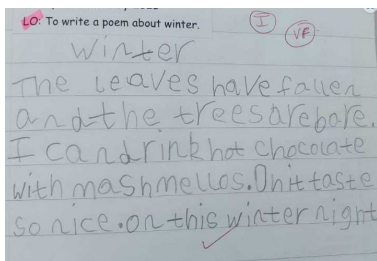 LO: To write a poem about winter.
I
VF
Winter
The leaves have fallen
and the trees are bare.
I can drink hot chocolate
with mashmellos. On it taste
so nice. on this winter night